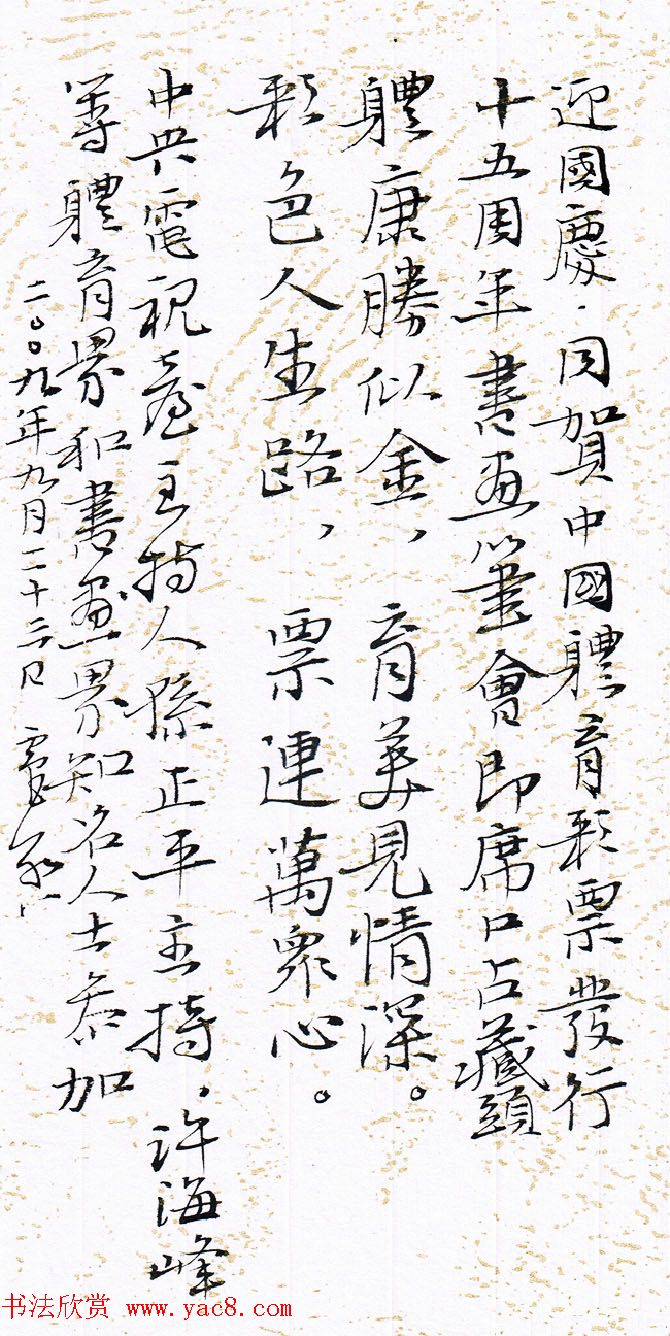 迎國慶·同賀中國體育彩票發行
十五周年書畫筆會即席口占藏頭
體康勝似金、育美見情深。
彩色人生路、票連萬眾心。
中央電視臺主持人孫正平主持。許海峰
等體育界和書畫界知名人士參加
二〇〇九年九月二十六日
书法欣赏 www.yac8.com